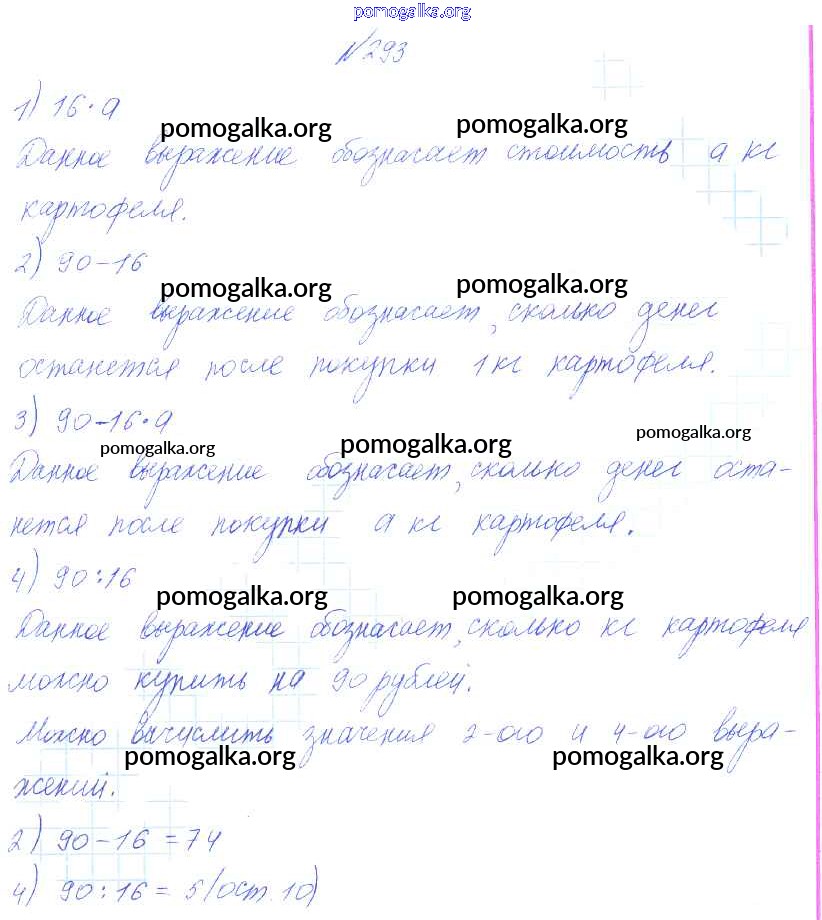 pomogalka.org
№293
1) 16·a
pomogalka.org pomogalka.org
Данное выражение обозначает стоимость a кг
картофеля.
2) 90-16
pomogalka.org pomogalka.org
Данное выражение обозначает, сколько денег
останется после покупки 1 кг картофеля.
3) 90-16·a
pomogalka.org pomogalka.org pomogalka.org
Данное выражение обозначает, сколько денег оста-
нется после покупки a кг картофеля.
4) 90:16
pomogalka.org pomogalka.org
Данное выражение обозначает, сколько кг картофеля
можно купить на 90 рублей.
Можно вычислить значения 2-ого и 4-ого выра-
pomogalka.org pomogalka.org
жений.
2) 90-16=74
4) 90:16=5(ост.10)